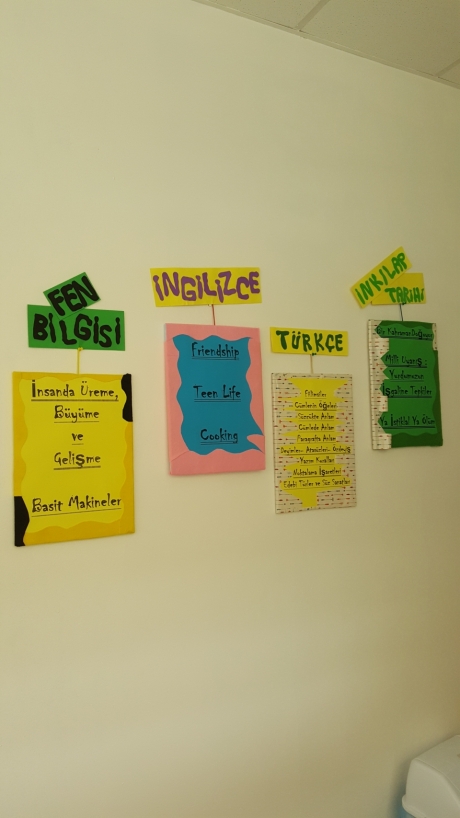 FEN
BİLGİSİ
İnsanda Üreme,
Büyüme
ve
Gelişme
Basit Makineler
İNGİLİZCE
Friendship
Teen Life
Cooking
TÜRKÇE
Fiilimsiler
Cümlenin Öğeleri
Sözcükte Anlam
Cümlede Anlam
Paragrafta Anlam
Deyimler, Atasözleri,
Yazım Kuralları
Noktalama İşaretleri
Edebi Türler ve Söz Sanatları
İNKILAP
TARİHİ
Bir Kahraman Doğuyor
Milli Uyanış :
Yurdumuzun
İşgaline Tepkiler
Ya İstiklal Ya Ölüm